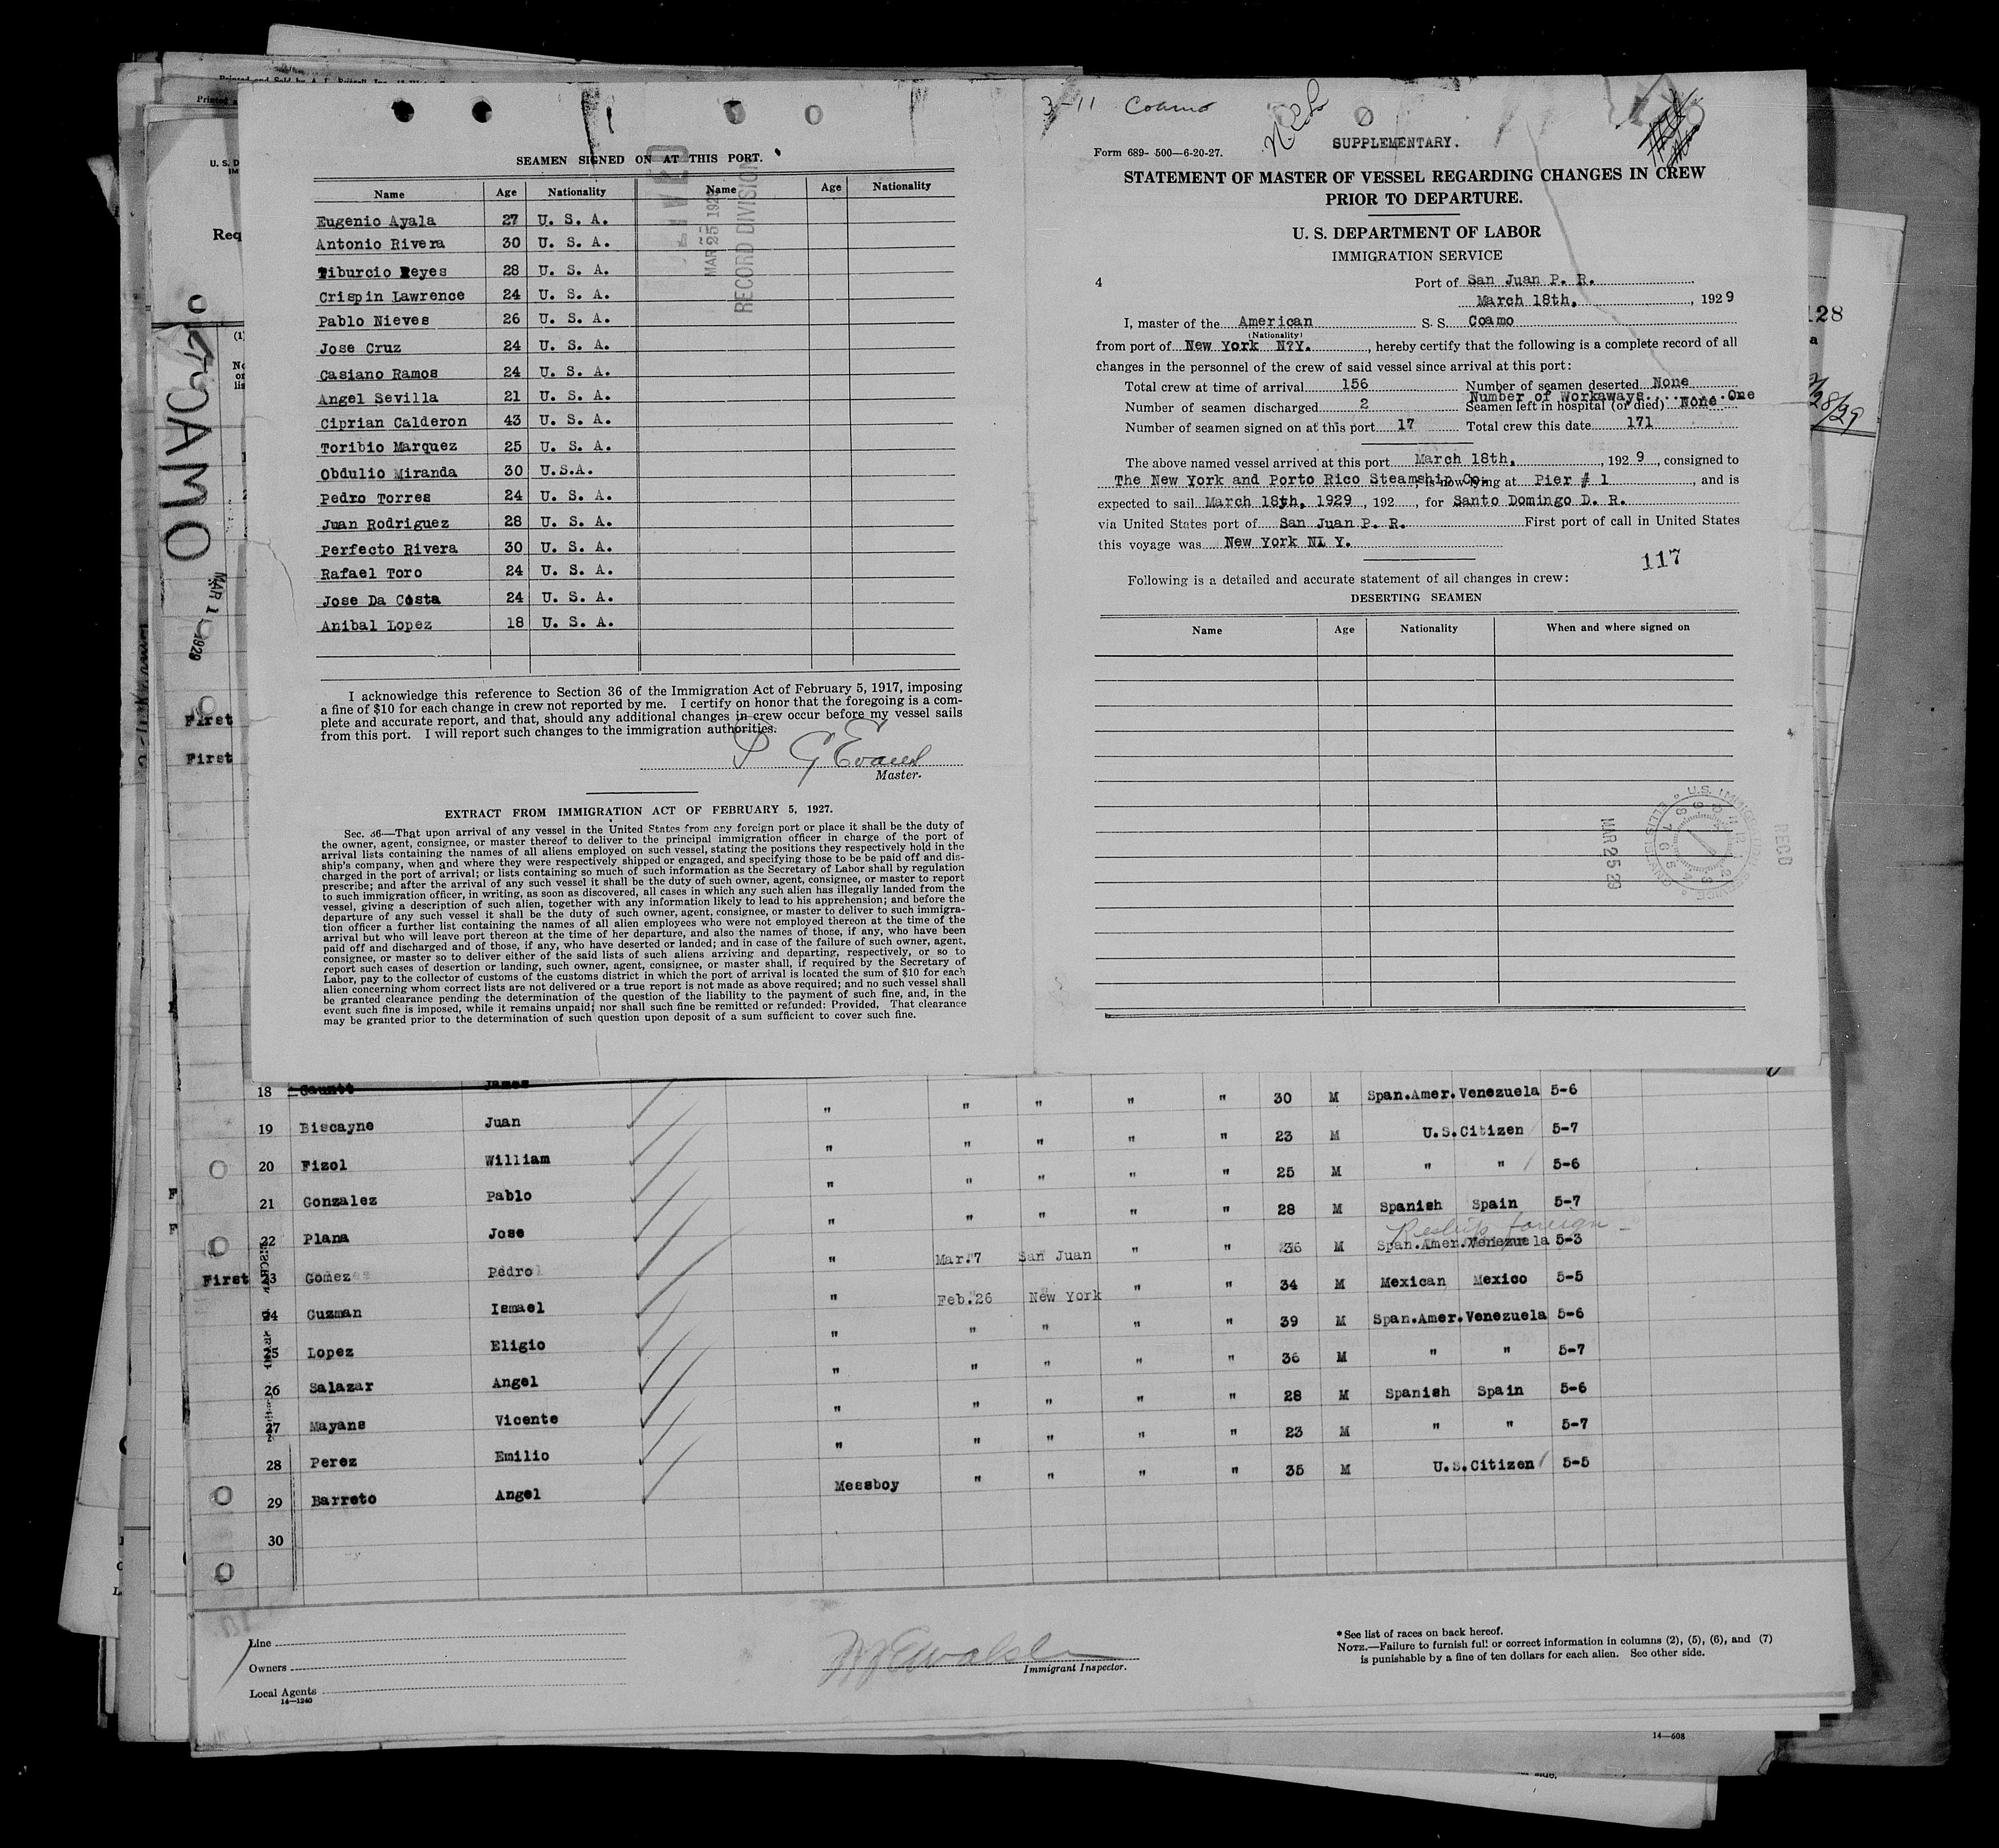 SEAMEN SIGNED ON AT THIS PORT.
Name Age Nationality Name Age Nationality
Eugenio Ayala 27 U. S. A.
Antonio Rivera 30 U. S. A.
Tiburcio Reyes 28 U. S. A.
Crispin Lawrence 24 U. S. A.
Pablo Nieves 26 U. S. A.
Jose Cruz 24 U. S. A.
Casiano Ramos 24 U. S. A.
Angel Sevilla 21 U. S. A.
Ciprian Calderon 43 U. S. A.
Toribio Marquez 25 U. S. A.
Obdulio Miranda 30 U.S.A.
Pedro Torres 24 U. S. A.
Juan Rodriguez 28 U. S. A.
Perfecto Rivera 30 U. S. A.
Rafael Toro 24 U. S. A.
Jose Da Costa 24 U. S. A.
Anibal Lopez 18 U. S. A.
MAR 25 192
RECORD DIVISION
I acknowledge this reference to Section 36 of the Immigration Act of February 5, 1917, imposing
a fine of $10 for each change in crew not reported by me. I certify on honor that the foregoing is a com-
plete and accurate report, and that, should any additional changes in crew occur before my vessel sails
from this port. I will report such changes to the immigration authorities.
Evans
Master.
EXTRACT FROM IMMIGRATION ACT OF FEBRUARY 5, 1927.
Sec. 36—That upon arrival of any vessel in the United States from any foreign port or place it shall be the duty of
the owner, agent, consignee, or master thereof to deliver to the principal immigration officer in charge of the port of
arrival lists containing the names of all aliens employed on such vessel, stating the positions they respectively hold in the
ship's company, when and where they were respectively shipped or engaged, and specifying those to be be paid off and dis-
charged in the port of arrival; or lists containing so much of such information as the Secretary of Labor shall by regulation
prescribe; and after the arrival of any such vessel it shall be the duty of such owner, agent, consignee, or master to report
to such immigration officer, in writing, as soon as discovered, all cases in which any such alien has illegally landed from the
vessel, giving a description of such alien, together with any information likely to lead to his apprehension; and before the
departure of any such vessel it shall be the duty of such owner, agent, consignee, or master to deliver to such immigra-
tion officer a further list containing the names of all alien employees who were not employed thereon at the time of the
arrival but who will leave port thereon at the time of her departure, and also the names of those, if any, who have been
paid off and discharged and of those, if any, who have deserted or landed; and in case of the failure of such owner, agent,
consignee, or master so to deliver either of the said lists of such aliens arriving and departing, respectively, or so to
report such cases of desertion or landing, such owner, agent, consignee, or master shall, if required by the Secretary of
Labor, pay to the collector of customs of the customs district in which the port of arrival is located the sum of $10 for each
alien concerning whom correct lists are not delivered or a true report is not made as above required; and no such vessel shall
be granted clearance pending the determination of the question of the liability to the payment of such fine, and, in the
event such fine is imposed, while it remains unpaid; nor shall such fine be remitted or refunded: Provided, That clearance
may be granted prior to the determination of such question upon deposit of a sum sufficient to cover such fine.
3-11 Coamo
Form 689- 500—6-20-27.
SUPPLEMENTARY.
STATEMENT OF MASTER OF VESSEL REGARDING CHANGES IN CREW
PRIOR TO DEPARTURE.
U. S. DEPARTMENT OF LABOR
IMMIGRATION SERVICE
4 Port of San Juan P. R.
March 18th, , 1929
I, master of the American S. S. Coamo
(Nationality)
from port of New York N?Y. , hereby certify that the following is a complete record of all
changes in the personnel of the crew of said vessel since arrival at this port:
Total crew at time of arrival 156 Number of seamen deserted None
Number of Workaways........One
Number of seamen discharged 2 Seamen left in hospital (or died) None
Number of seamen signed on at this port 17 Total crew this date 171
The above named vessel arrived at this port March 18th, , 192 9 , consigned to
The New York and Porto Rico Steamship Co. , is now lying at Pier # 1 , and is
expected to sail March 18th, 1929 , 192 , for Santo Domingo D. R.
via United States port of San Juan P. R. First port of call in United States
this voyage was New York NL Y.
117
Following is a detailed and accurate statement of all changes in crew:
DESERTING SEAMEN
Name Age Nationality When and where signed on
MAR 25 29
REC'D
U.S. IMMIGRATION
ELLIS ISLAND
COAMO
MAR 1 1929
Req
First
First
128
2/28/29
18 Gauntt James 30 M Span.Amer. Venezuela 5-6
19 Biscayne Juan " " " " " 23 M U.S.Citizen 5-7
20 Fizol William " " " " " 25 M " " 5-6
21 Gonzalez Pablo " " " " " 28 M Spanish Spain 5-7
Reship foreign
22 Plana Jose " " " " " 36 M Span.Amer. Venezuela 5-3
First 23 Gomez Pedro " Mar.7 San Juan " " 34 M Mexican Mexico 5-5
24 Guzman Ismael " Feb.26 New York " " 39 M Span.Amer. Venezuela 5-6
25 Lopez Eligio " " " " " 36 M " " 5-7
26 Salazar Angel " " " " " 28 M Spanish Spain 5-6
27 Mayans Vicente " " " " " 23 M " " 5-7
28 Perez Emilio " " " " " 35 M U.S.Citizen 5-5
29 Barreto Angel Messboy " " " "
30
Line
Owners
Local Agents
14—1240
Immigrant Inspector.
*See list of races on back hereof.
NOTE.—Failure to furnish full or correct information in columns (2), (5), (6), and (7)
is punishable by a fine of ten dollars for each alien. See other side.
14—608